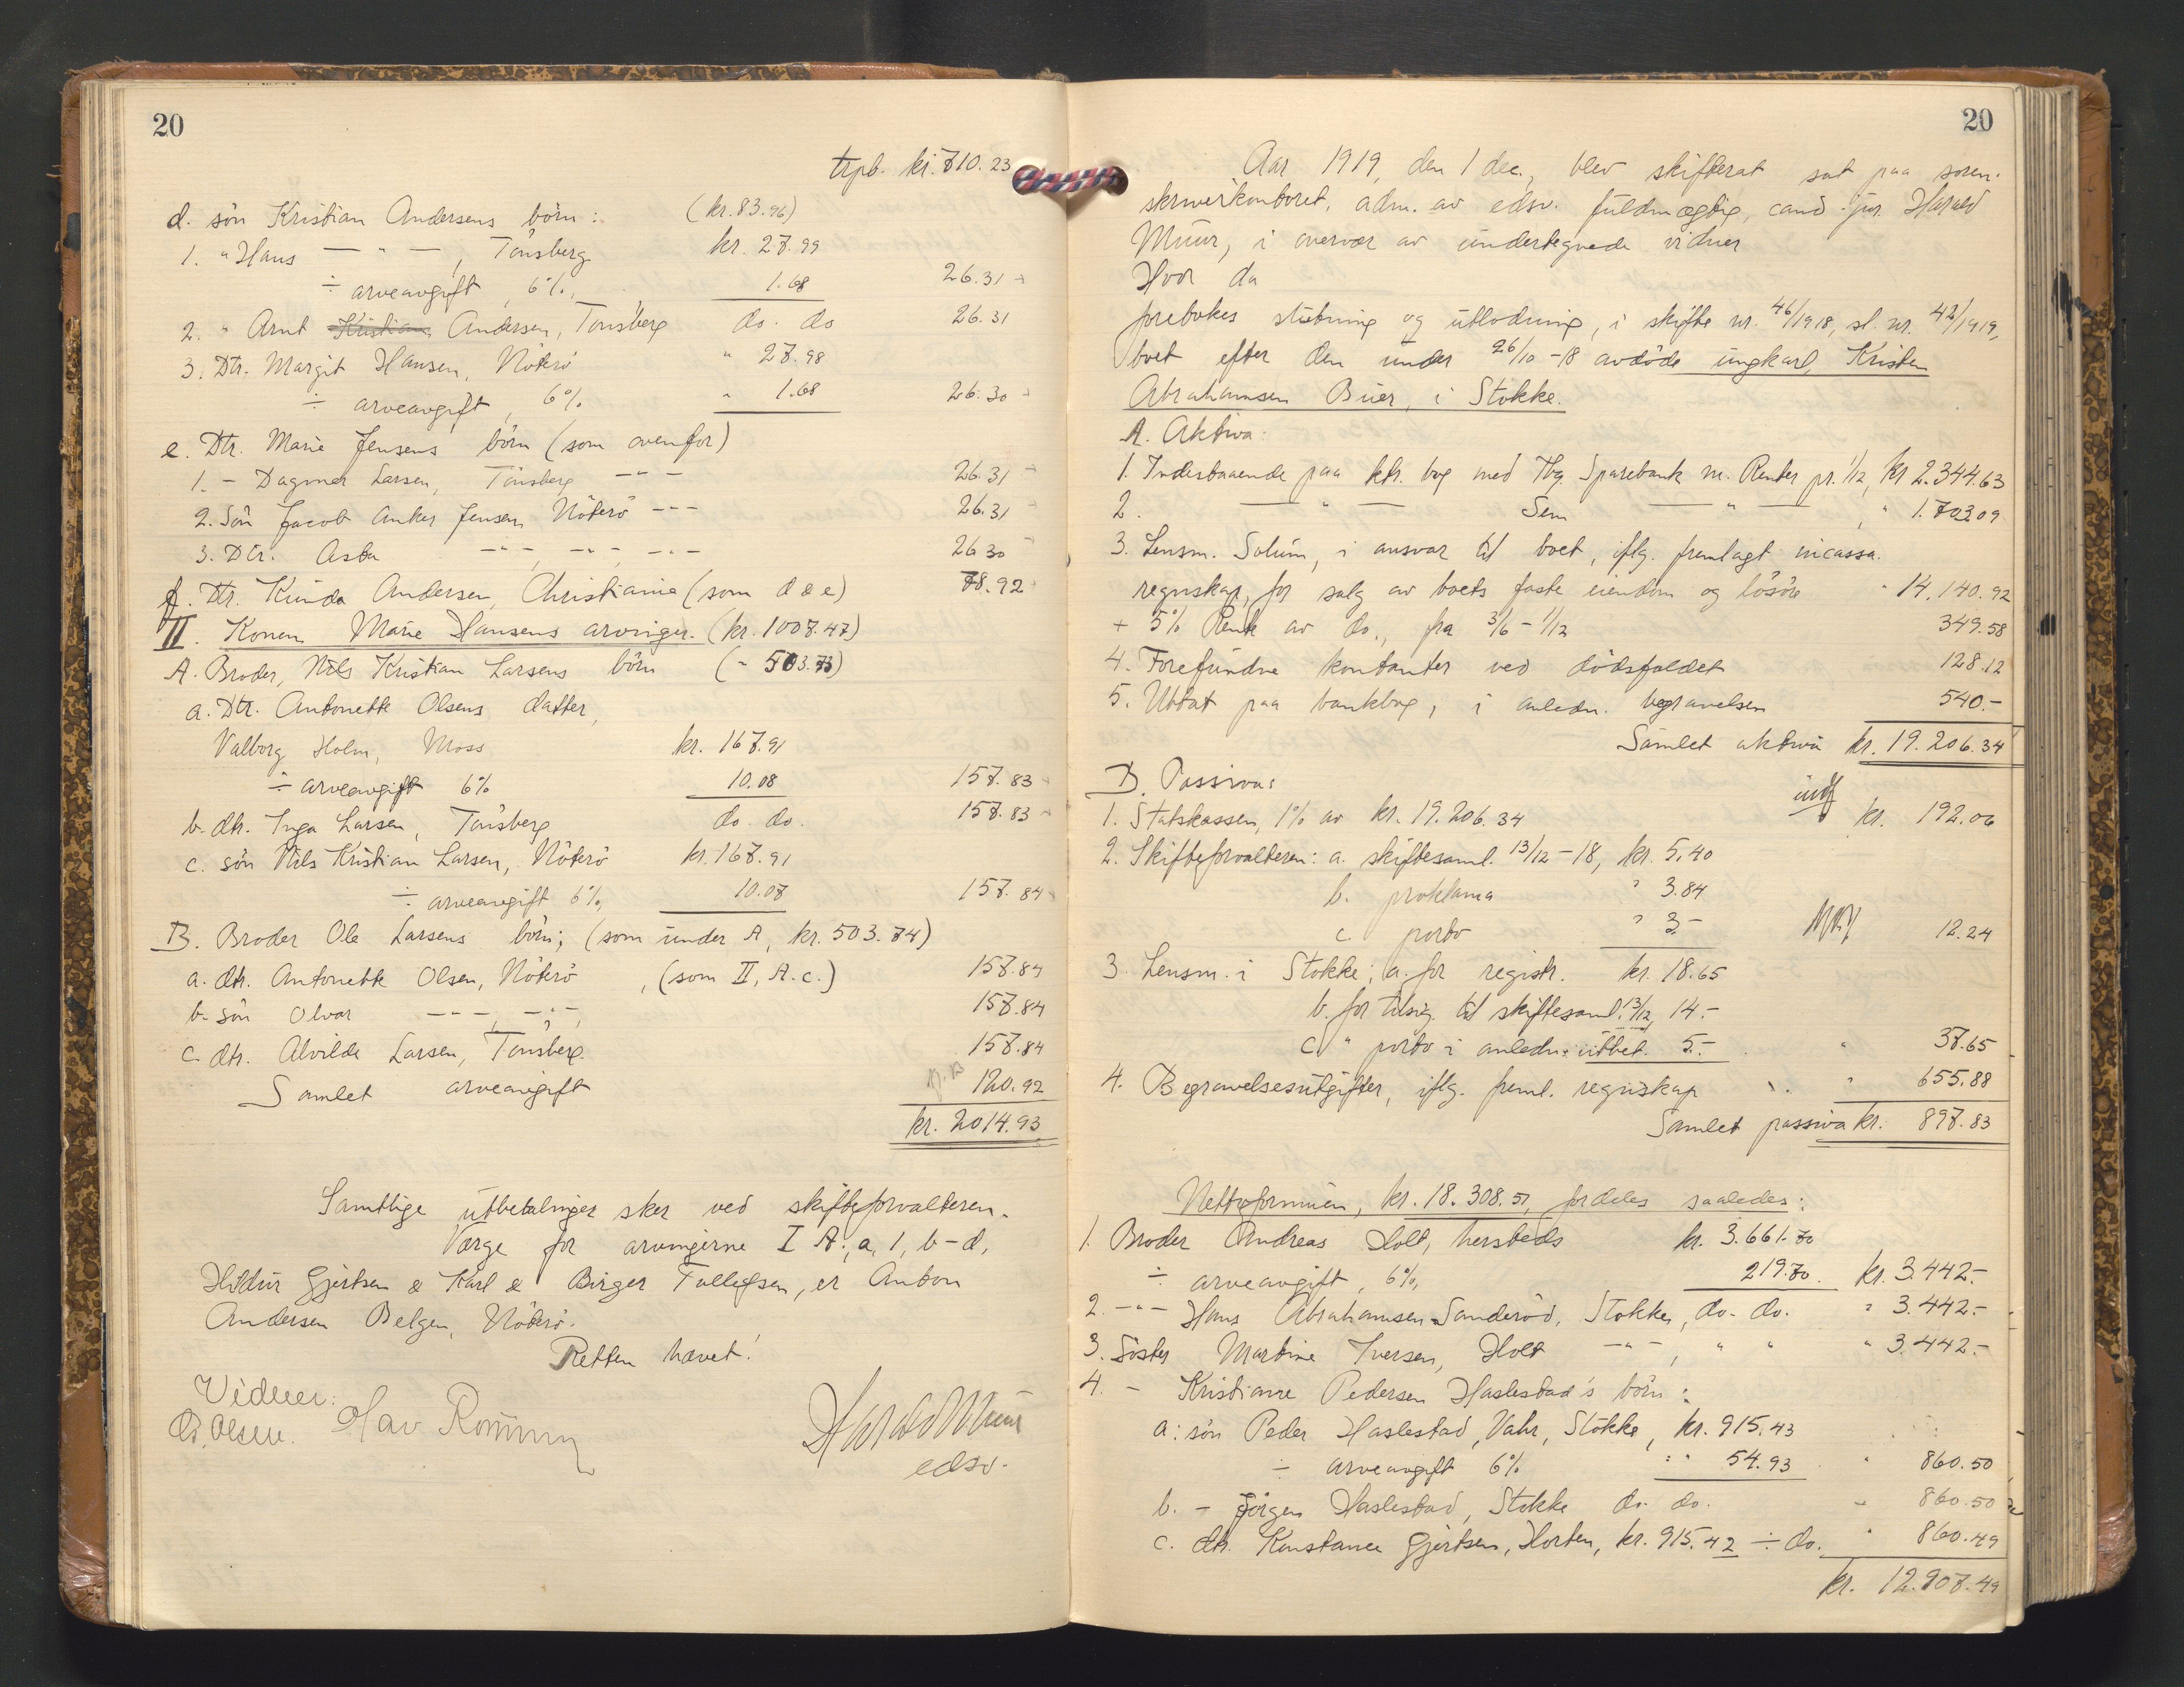 20
trpb. kr. 710.23
d. sön Kristian Andersens börn: (kr. 83.96)
1. " Hans — " — , Tönsberg kr. 27.99
÷ arveavgift, 6%, 1.68 26.31
2. " Arnt Kristian Andersen, Tönsberg do. do 26.31
3. Dtr. Margit Hansen, Nöterö " 27.98
÷ arveavgift, 6% " 1.68 26.30
e. Dtr. Marie Jensens börn (som ovenfor)
1. - Dagmar Larsen, Tönsberg — " — 26.31
2. Sön Jacob Anker Jensen, Nöterö - " - 26.31
3. Dtr. Asta -"-, -"-, -"- 26.30
f. Dtr. Kinda Andersen, Christiania (som d & e) 78.92
II. Konen Marie Hansens arvinger. (kr. 1007.47)
A. Broder, Nils Kristian Larsens börn ( " 503.73)
a. Dtr. Antonette Olsens datter,
Valborg Holm, Moss kr. 167.91
÷ arveavgift 6% 10.08 157.83
b. dtr. Inga Larsen, Tönsberg do. do. 157.83
c. sön Nils Kristian Larsen, Nöterö kr. 167.91
÷ arveavgift 6%, 10.07 157.84
B. Broder Ole Larsens börn; (som under A, kr. 503.74)
a. dtr. Antonette Olsen, Nöterö , (som II, A. c.) 157.84
b. sön Olvar -"-, -"-, 157.84
c. dtr. Alvilde Larsen, Tönsberg. 157.84
Samlet arveavgift 120.92
kr. 2014.93
Samtlige utbetalinger sker ved skifteforvalteren.
Værge for arvingerne I A:, a, 1, b-d,
Hildur Gjertsen & Karl & Birger Tollefsen, er Anton
Andersen Belgen, Nöterö.
Retten hævet!
Vidner:
Olsen. Olav Harald Muur
edsv.
20
Aar 1919, den 1 dec., blev skifteret sat paa soren-
skriverkontoret, adm. av edsv. fuldmægtig, cand. jur. Harald
Muur, i overvær av undertegnede vidner
Hvor da
forebokes slutning og utlodning, i skifte nr. 46/1918, sl. nr. 42/1919,
boet efter den under 26/10 -18 avdöde ungkarl, Kristen
Abrahamsen Buer, i Stokke.
A. Aktiva:
1. Indestaaende paa ktr. bog med Tbg. Sparebank m. Renter pr. 1/12, kr 2.344.63
2. — " — Sem — " — , " 1.703.09
3. Lensm. Solum, i ansvar til boet, iflg. fremlagt incasso-
regnskap, for salg av boets faste eiendom og lösöre " 14.140.92
+ 5% Rente av do., fra 3/6 - 1/12 349.58
4. Forefundne kontanter ved dödsfaldet 128.12
5. Uttat paa bankbog, i anledn. begravelsen 540.-
Samlet aktiva kr. 19.206.34
B. Passiva:
1. Statskassen, 1% av kr. 19.206.34 kr. 192.06
2. Skifteforvalteren: a. skiftesaml. 13/12 - 18, kr. 5.40
b. proklama " 3.84
c. porto " 3.- 12.24
3. Lensm. i Stokke; a. for registr. kr. 18.65
b. for tilsig. til skiftesaml. 13/12, 14.-
c. " porto i anledn. utbet. 5.- " 37.65
4. Begravelsesutgifter, iflg. freml. regnskap " 655.88
Samlet passiva kr. 897.83
Nettoformuen, kr. 18.308.51, fordeles saaledes:
1. Broder Andreas Holt, hersteds kr. 3.661.70
÷ arveavgift, 6%, 219.70 kr. 3.442.-
2. -"- Hans Abrahamsen Sanderöd, Stokke, do. do. " 3.442.-
3. Söster Martine Iversen, Holt -"-, " " " 3.442.-
4. - Kristiane Pedersen Haslestad's börn:
a: sön Peder Haslestad, Valir, Stokke, kr. 915.43
÷ arveavgift 6% " 54.93 " 860.50
b. - Jörgen Haslestad, Stokke do. do. - 860.50
c. dtr. Konstance Gjertsen, Horten, kr. 915.42 ÷ do. " 860.49
kr. 12.907.49